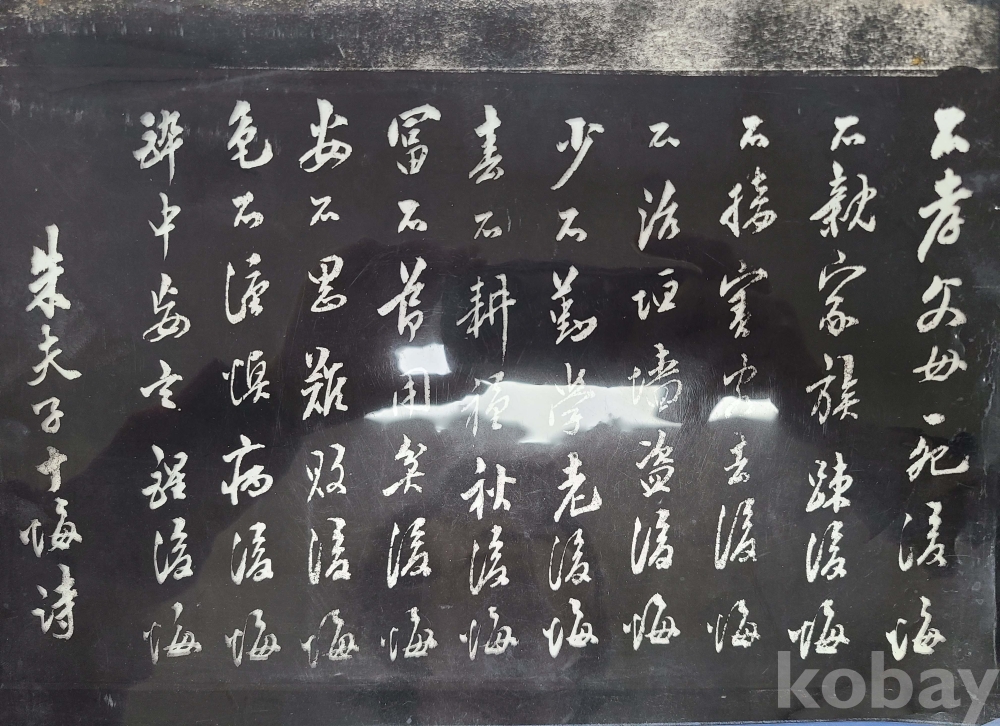 不孝父母死後悔
不親家族踈後悔
不接賓客去後悔
不治垣墻盜後悔
少不勤學老後悔
春不耕種秋後悔
富不節用貧後悔
安不思難敗後悔
色不謹愼病後悔
醉中妄言醒後悔
朱夫子十悔詩
kobay